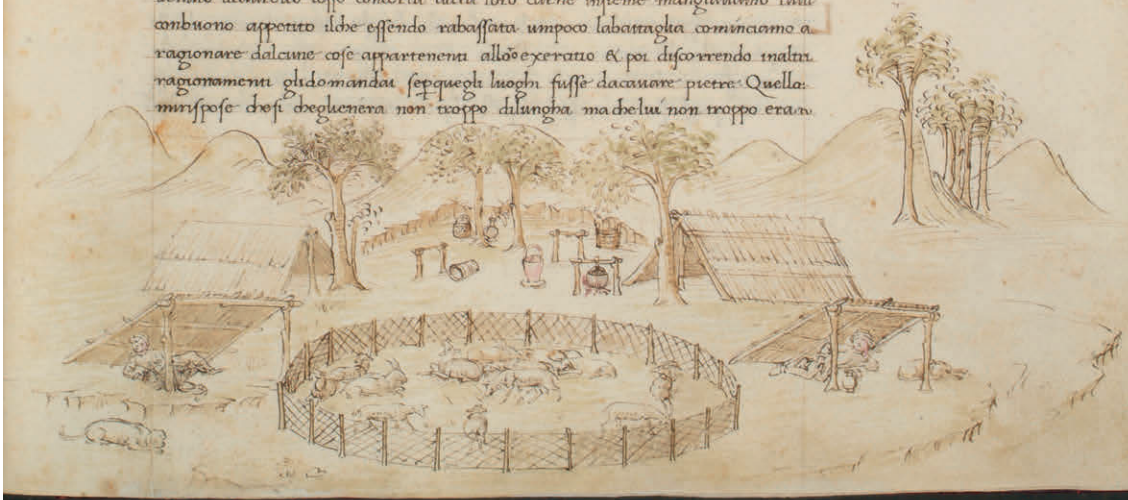 conbuono appetito ilche essendo rabassata umpoco labattaglia cominciamo a
ragionare dalcune cose appartenenti alloro exercitio & poi discorrendo inaltri
ragionamenti glidomandai se perquegli luoghi fusse dacauare pietre Quello
mirispose chesi cheglienera non troppo dilungha ma che lui non troppo era